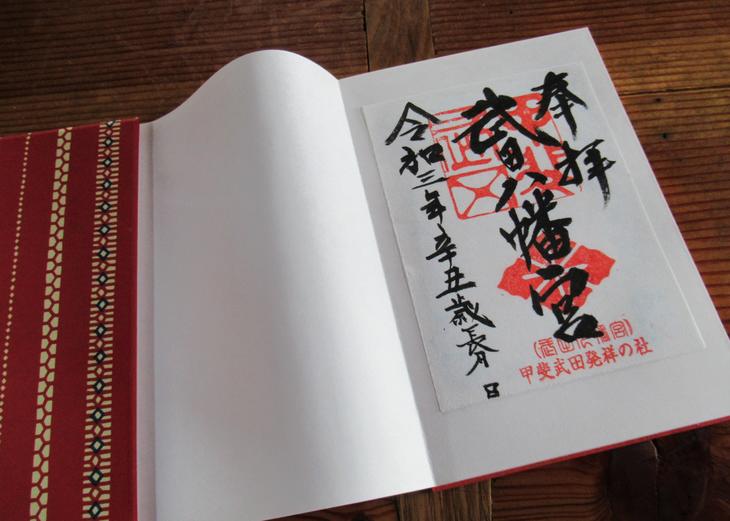 奉拝
武田八幡宮
令和三年辛丑歳長月 日
甲斐武田発祥の社